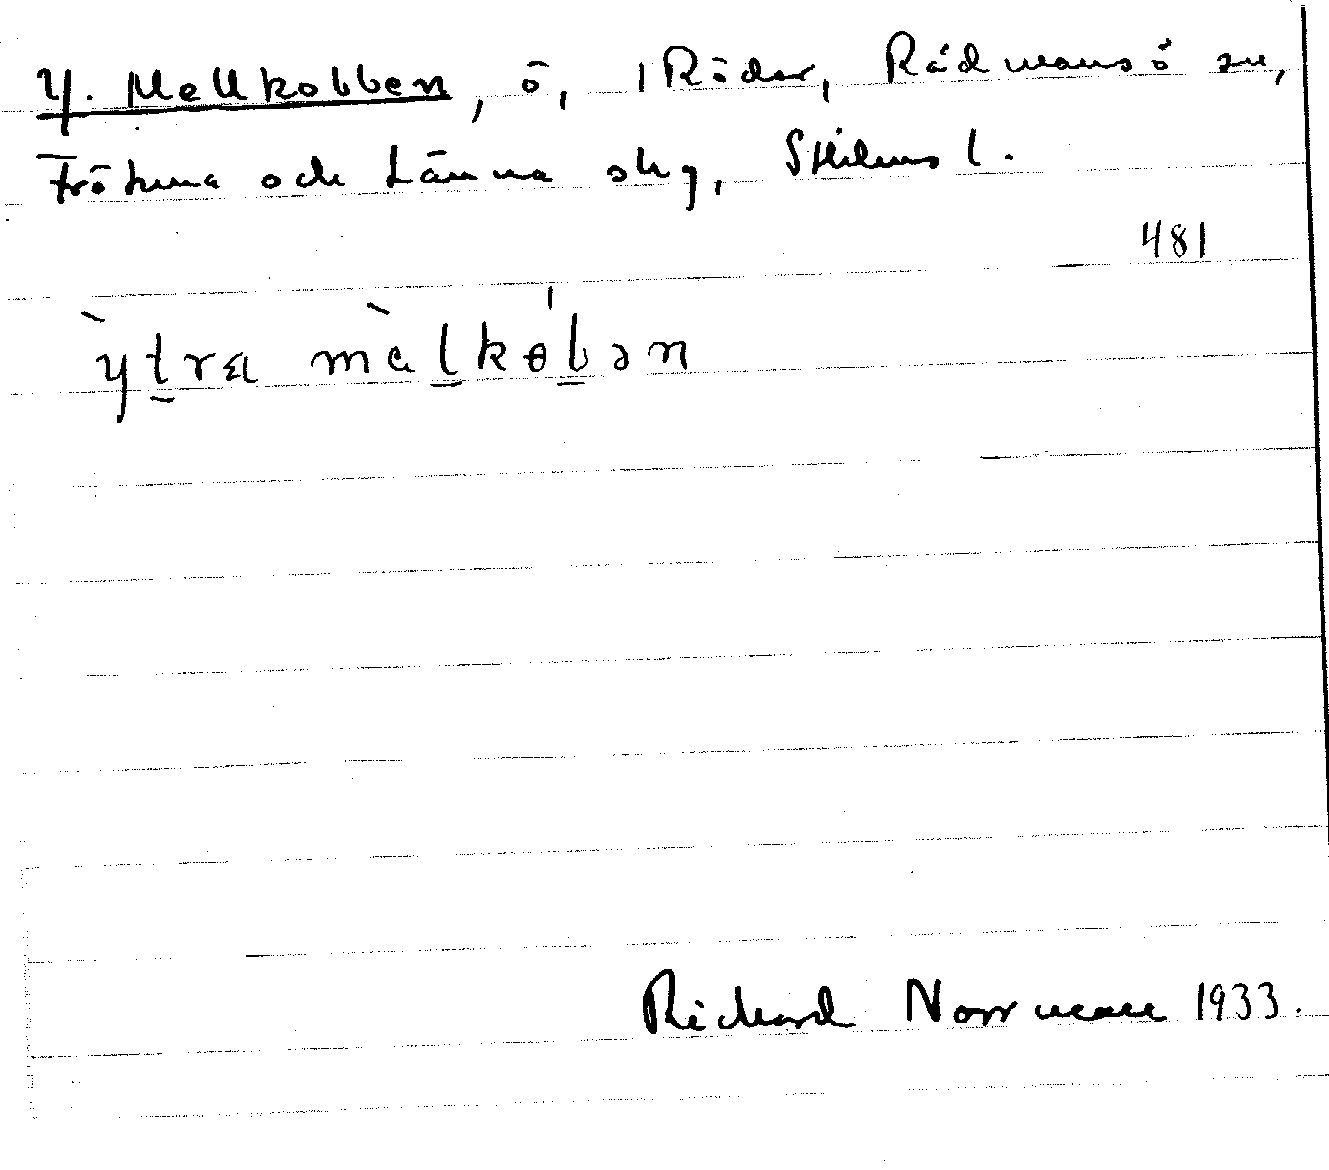 Y. Mellkobben, ö, i Röder, Rådmansö sn,
Frötuna och Länna skg, Sthlms l.
481
ỳt̲ra màl̲kób̲ən
Richard Norrman 1933.